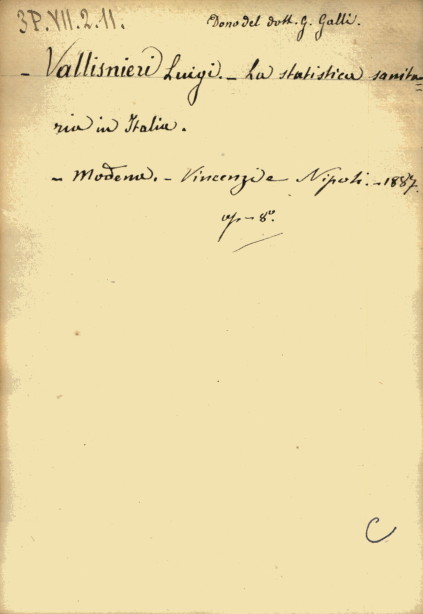 3P.VII.2.11.
Dono del dott. G. Galli.
- Vallisnieri Luigi. - La statistica sanita=
ria in Italia.
- Modena. - Vincenzi e Nipoti. - 1887.
op - 8º.
C